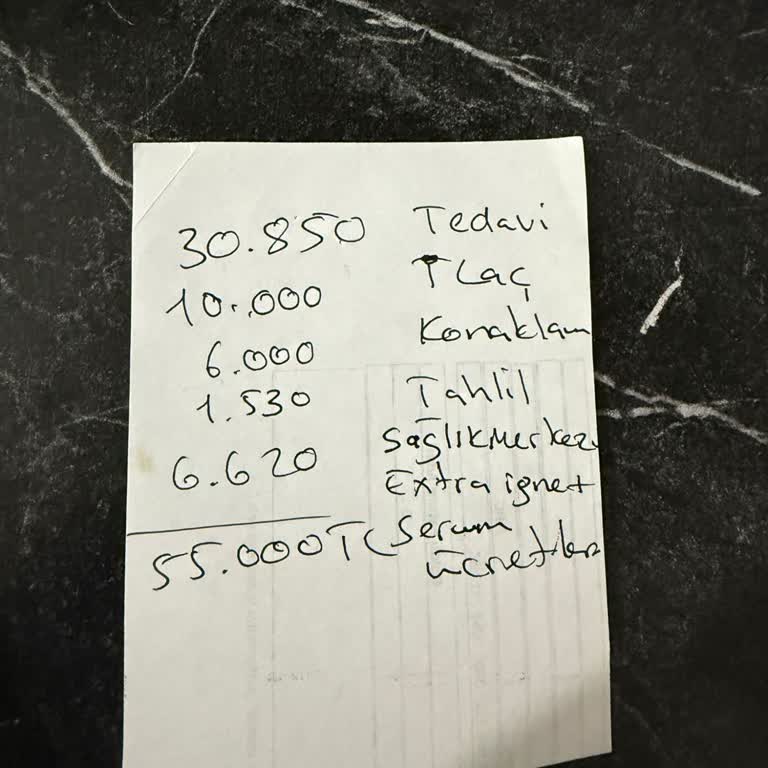 30.850 Tedavi
10.000 İLaç
6.000 Konaklam
1.530 Tahlil
6.620 SağlıkMerkezi
Extra iğne+
55.000TL Serum
ücretleri